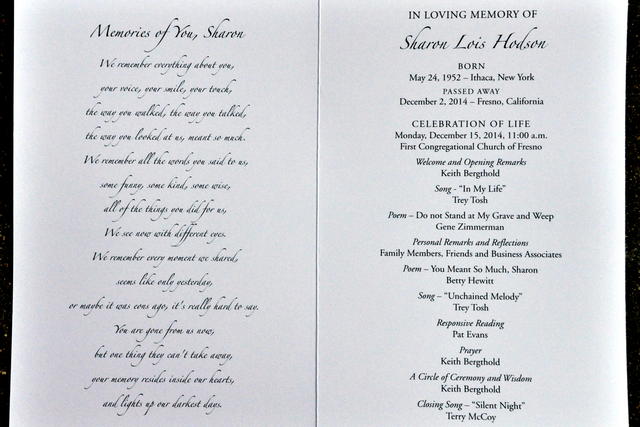 Memories of You, Sharon
We remember everything about you,
your voice, your smile, your touch,
the way you walked, the way you talked,
the way you looked at us, meant so much.
We remember all the words you said to us,
some funny, some kind, some wise,
all of the things you did for us,
We see now with different eyes.
We remember every moment we shared,
seems like only yesterday,
or maybe it was eons ago, it's really hard to say.
You are gone from us now,
but one thing they can't take away,
your memory resides inside our hearts,
and lights up our darkest days.
IN LOVING MEMORY OF
Sharon Lois Hodson
BORN
May 24, 1952 – Ithaca, New York
PASSED AWAY
December 2, 2014 – Fresno, California
CELEBRATION OF LIFE
Monday, December 15, 2014, 11:00 a.m.
First Congregational Church of Fresno
Welcome and Opening Remarks
Keith Bergthold
Song - "In My Life"
Trey Tosh
Poem – Do not Stand at My Grave and Weep
Gene Zimmerman
Personal Remarks and Reflections
Family Members, Friends and Business Associates
Poem – You Meant So Much, Sharon
Betty Hewitt
Song – "Unchained Melody"
Trey Tosh
Responsive Reading
Pat Evans
Prayer
Keith Bergthold
A Circle of Ceremony and Wisdom
Keith Bergthold
Closing Song – "Silent Night"
Terry McCoy